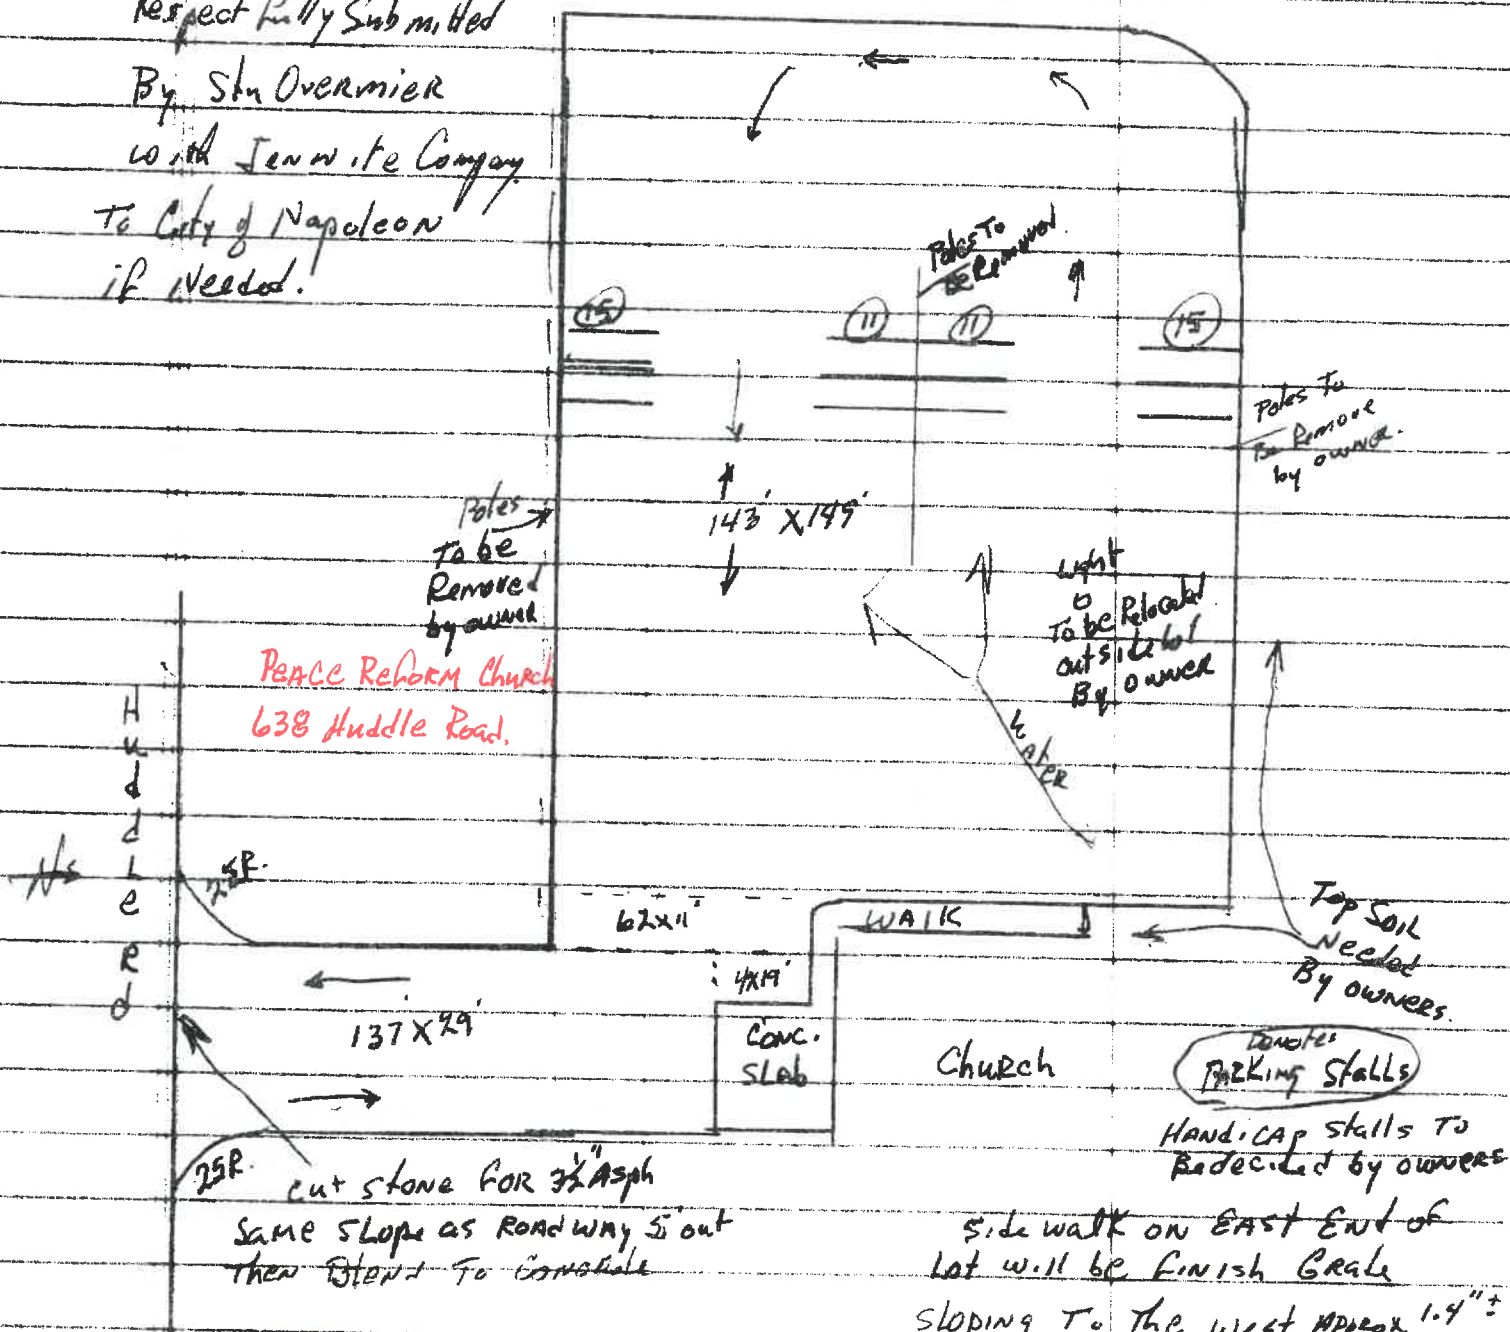 Respectfully Submitted
By Stu Overmier
with Jennite Company
To City of Napoleon
if Needed.
Poles To
Be Removed
15
11
11
15
Poles To
Be Remove
by owner.
Poles
To be
Removed
by owner
143' X 149'
Light
To be Relocated
outside lot
By owner
PEACE REFORM Church
638 Huddle Road.
WATER
HuddLe Rd
N
25R.
62X11'
WALK
Top Soil
Needed
By owners.
4X19'
137 X 29'
CONC.
SLab
Church
Denotes
PARKING Stalls
HANdiCAP Stalls To
Be decided by owners
25R.
cut STONE FOR 3½" Asph
SAME Slope as ROADWAY 5' out
Then Blend To
Side walk on EAST End of
Lot will be finish Grade
SLOPING To The West Approx 1.4" ±